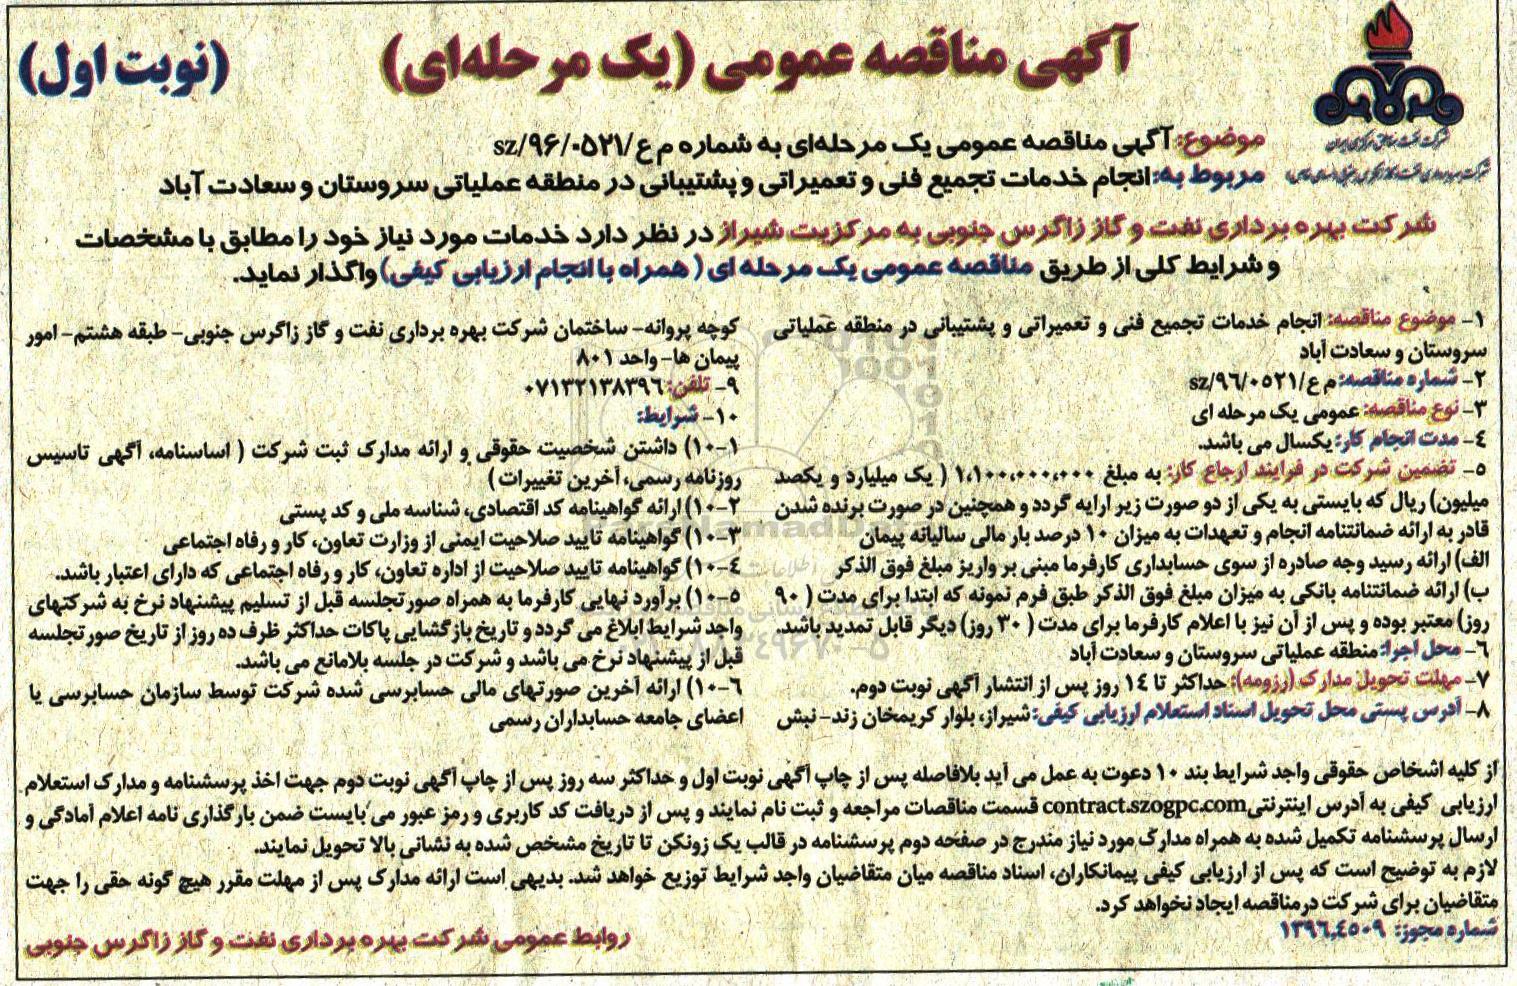 آگهی مناقصه عمومی (یک مرحله‌ای)
(نوبت اول)
موضوع: آگهی مناقصه عمومی یک مرحله‌ای به شماره م ع/sz/۹۶/۰۵۲۱
مربوط به: انجام خدمات تجمیع فنی و تعمیراتی و پشتیبانی در منطقه عملیاتی سروستان و سعادت آباد
شرکت بهره برداری نفت و گاز زاگرس جنوبی به مرکزیت شیراز در نظر دارد خدمات مورد نیاز خود را مطابق با مشخصات
و شرایط کلی از طریق مناقصه عمومی یک مرحله ای ( همراه با انجام ارزیابی کیفی) واگذار نماید.
۱- موضوع مناقصه: انجام خدمات تجمیع فنی و تعمیراتی و پشتیبانی در منطقه عملیاتی
سروستان و سعادت آباد
۲- شماره مناقصه: م ع/sz/۹۶/۰۵۲۱
۳- نوع مناقصه: عمومی یک مرحله ای
۴- مدت انجام کار: یکسال می باشد.
۵- تضمین شرکت در فرایند ارجاع کار: به مبلغ ۱،۱۰۰،۰۰۰،۰۰۰ ( یک میلیارد و یکصد
میلیون) ریال که بایستی به یکی از دو صورت زیر ارایه گردد و همچنین در صورت برنده شدن
قادر به ارائه ضمانتنامه انجام و تعهدات به میزان ۱۰ درصد بار مالی سالیانه پیمان
الف) ارائه رسید وجه صادره از سوی حسابداری کارفرما مبنی بر واریز مبلغ فوق الذکر
ب) ارائه ضمانتنامه بانکی به میزان مبلغ فوق الذکر طبق فرم نمونه که ابتدا برای مدت ( ۹۰
روز) معتبر بوده و پس از آن نیز با اعلام کارفرما برای مدت ( ۳۰ روز) دیگر قابل تمدید باشد.
۶- محل اجرا: منطقه عملیاتی سروستان و سعادت آباد
۷- مهلت تحویل مدارک (رزومه): حداکثر تا ۱۴ روز پس از انتشار آگهی نوبت دوم.
۸- آدرس پستی محل تحویل اسناد استعلام ارزیابی کیفی: شیراز، بلوار کریمخان زند- نبش
کوچه پروانه- ساختمان شرکت بهره برداری نفت و گاز زاگرس جنوبی- طبقه هشتم- امور
پیمان ها- واحد ۸۰۱
۹- تلفن: ۰۷۱۳۲۱۳۸۳۹۶
۱۰- شرایط:
۱۰-۱) داشتن شخصیت حقوقی و ارائه مدارک ثبت شرکت ( اساسنامه، آگهی تاسیس
روزنامه رسمی، آخرین تغییرات )
۱۰-۲) ارائه گواهینامه کد اقتصادی، شناسه ملی و کد پستی
۱۰-۳) گواهینامه تایید صلاحیت ایمنی از وزارت تعاون، کار و رفاه اجتماعی
۱۰-۴) گواهینامه تایید صلاحیت از اداره تعاون، کار و رفاه اجتماعی که دارای اعتبار باشد.
۱۰-۵) برآورد نهایی کارفرما به همراه صورتجلسه قبل از تسلیم پیشنهاد نرخ به شرکتهای
واجد شرایط ابلاغ می گردد و تاریخ بازگشایی پاکات حداکثر ظرف ده روز از تاریخ صورتجلسه
قبل از پیشنهاد نرخ می باشد و شرکت در جلسه بلامانع می باشد.
۱۰-۶) ارائه آخرین صورتهای مالی حسابرسی شده شرکت توسط سازمان حسابرسی یا
اعضای جامعه حسابداران رسمی
از کلیه اشخاص حقوقی واجد شرایط بند ۱۰ دعوت به عمل می آید بلافاصله پس از چاپ آگهی نوبت اول و حداکثر سه روز پس از چاپ آگهی نوبت دوم جهت اخذ پرسشنامه و مدارک استعلام
ارزیابی کیفی به آدرس اینترنتی contract.szogpc.com قسمت مناقصات مراجعه و ثبت نام نمایند و پس از دریافت کد کاربری و رمز عبور می بایست ضمن بارگذاری نامه اعلام آمادگی و
ارسال پرسشنامه تکمیل شده به همراه مدارک مورد نیاز مندرج در صفحه دوم پرسشنامه در قالب یک زونکن تا تاریخ مشخص شده به نشانی بالا تحویل نمایند.
لازم به توضیح است که پس از ارزیابی کیفی پیمانکاران، اسناد مناقصه میان متقاضیان واجد شرایط توزیع خواهد شد. بدیهی است ارائه مدارک پس از مهلت مقرر هیچ گونه حقی را جهت
متقاضیان برای شرکت در مناقصه ایجاد نخواهد کرد.
شماره مجوز: ۱۳۹۶.۴۵۰۹
روابط عمومی شرکت بهره برداری نفت و گاز زاگرس جنوبی